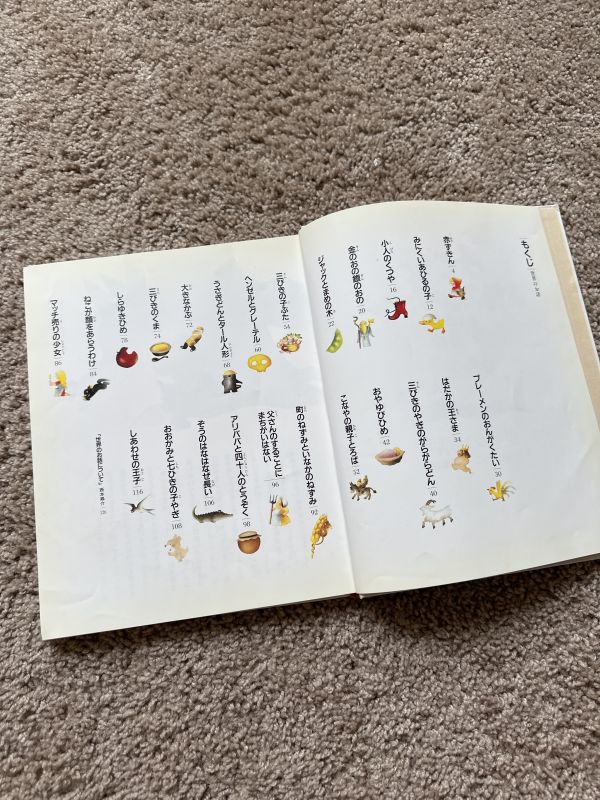 もくじ
赤ずきん 4
みにくいあひるの子 12
小人のくつや 16
金のおの銀のおの 20
ジャックとまめの木 22
ブレーメンのおんがくたい 30
はだかの王さま 34
三びきのやぎのがらがらどん 40
おやゆびひめ 42
こなやの親子とろば 52
三びきの子ぶた 54
ヘンゼルとグレーテル 60
うさぎどんとタール人形 68
大きなかぶ 72
三びきのくま 74
しらゆきひめ 78
ねこが顔をあらうわけ 84
マッチ売りの少女 86
町のねずみといなかのねずみ 92
父さんのすることに
まちがいはない 96
アリババと四十人のとうぞく 98
ぞうのはなはなぜ長い 106
おおかみと七ひきの子やぎ 108
しあわせの王子 116
「世界のお話について」